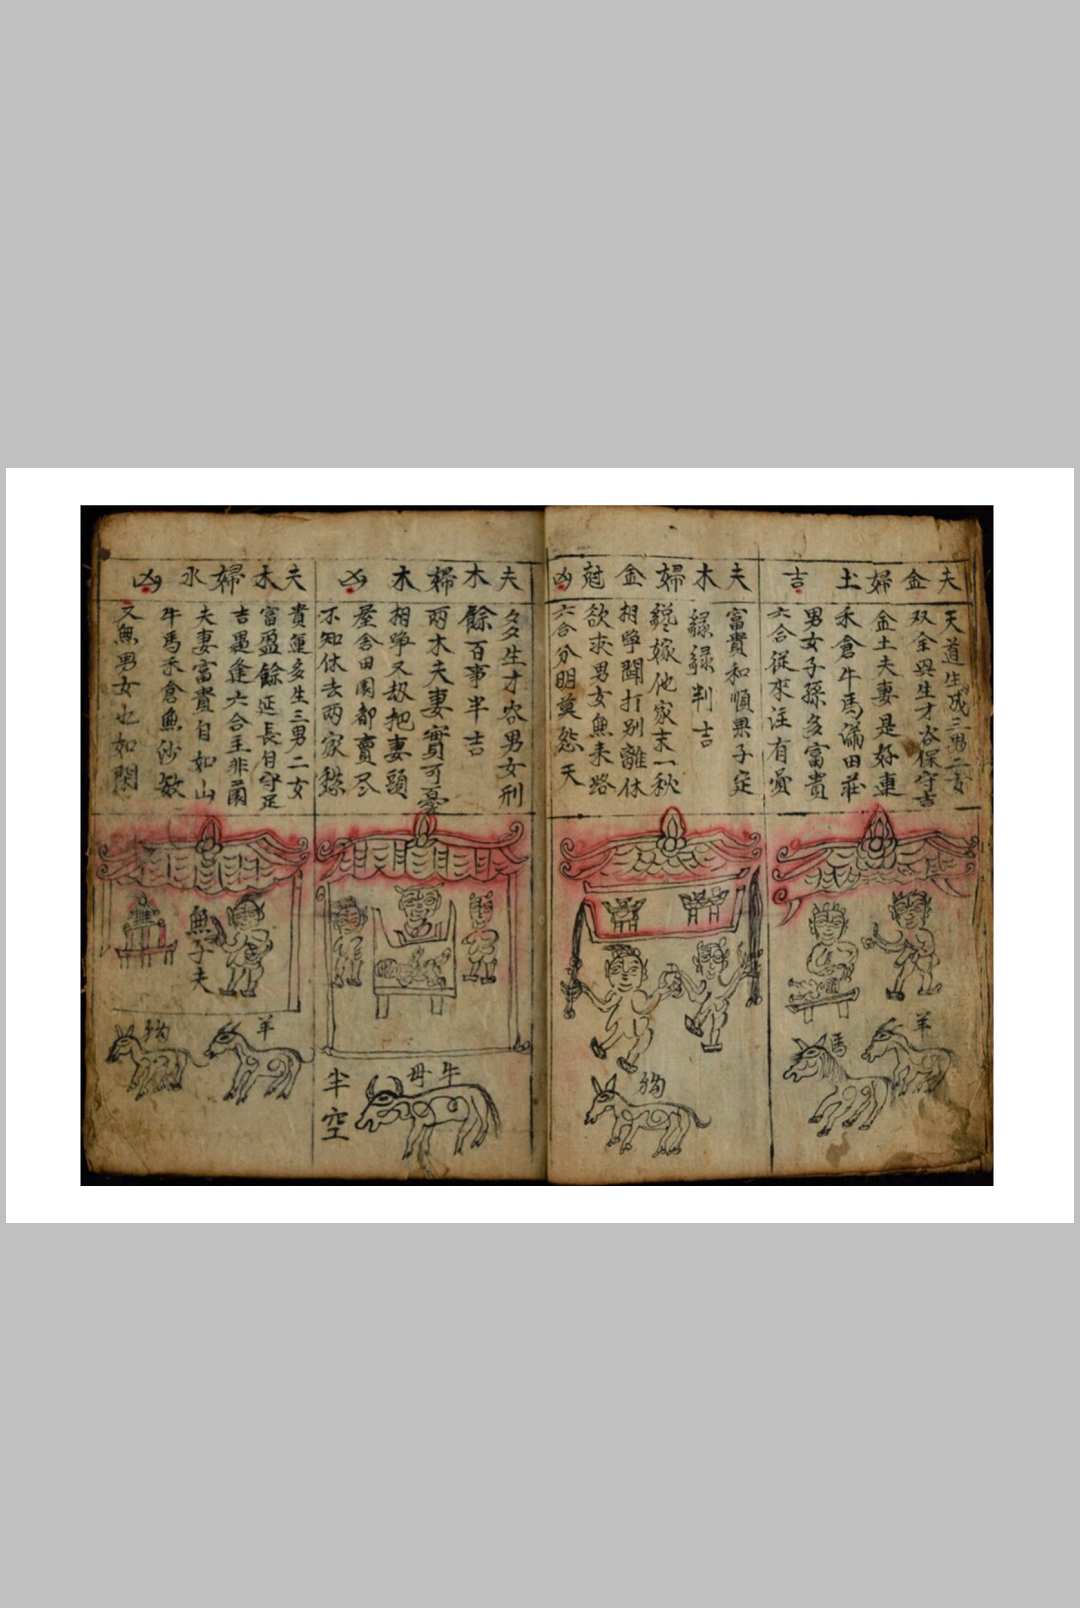 夫金婦土吉
天道生成三男二女
双全與生才谷保守吉
金土夫妻是好連
禾倉牛馬滿田莊
男女子孫多富貴
六合從來注有
羊
馬
夫木婦金尅凶
富貴和順果子定
判吉
嫁他家末一秋
相爭鬪打別離休
欲求男女無来路
六合分明莫怨天
狗
夫木婦木凶
多生才谷男女刑
餘百事半吉
兩木夫妻實可憂
相爭又敨把妻頭
屋舍田園都賣尽
不知休去两家愁
牛母
半空
夫木婦水凶
貴運多生三男二女
富盈餘延長自守足
吉遇逢六合主非
夫妻富貴自如山
牛馬禾倉無沙数
又無男女也如閑
無子夫
羊
狗